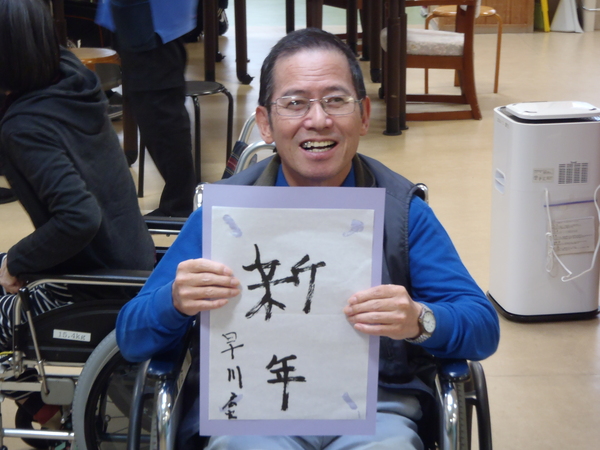 新年
早川
15.4kg